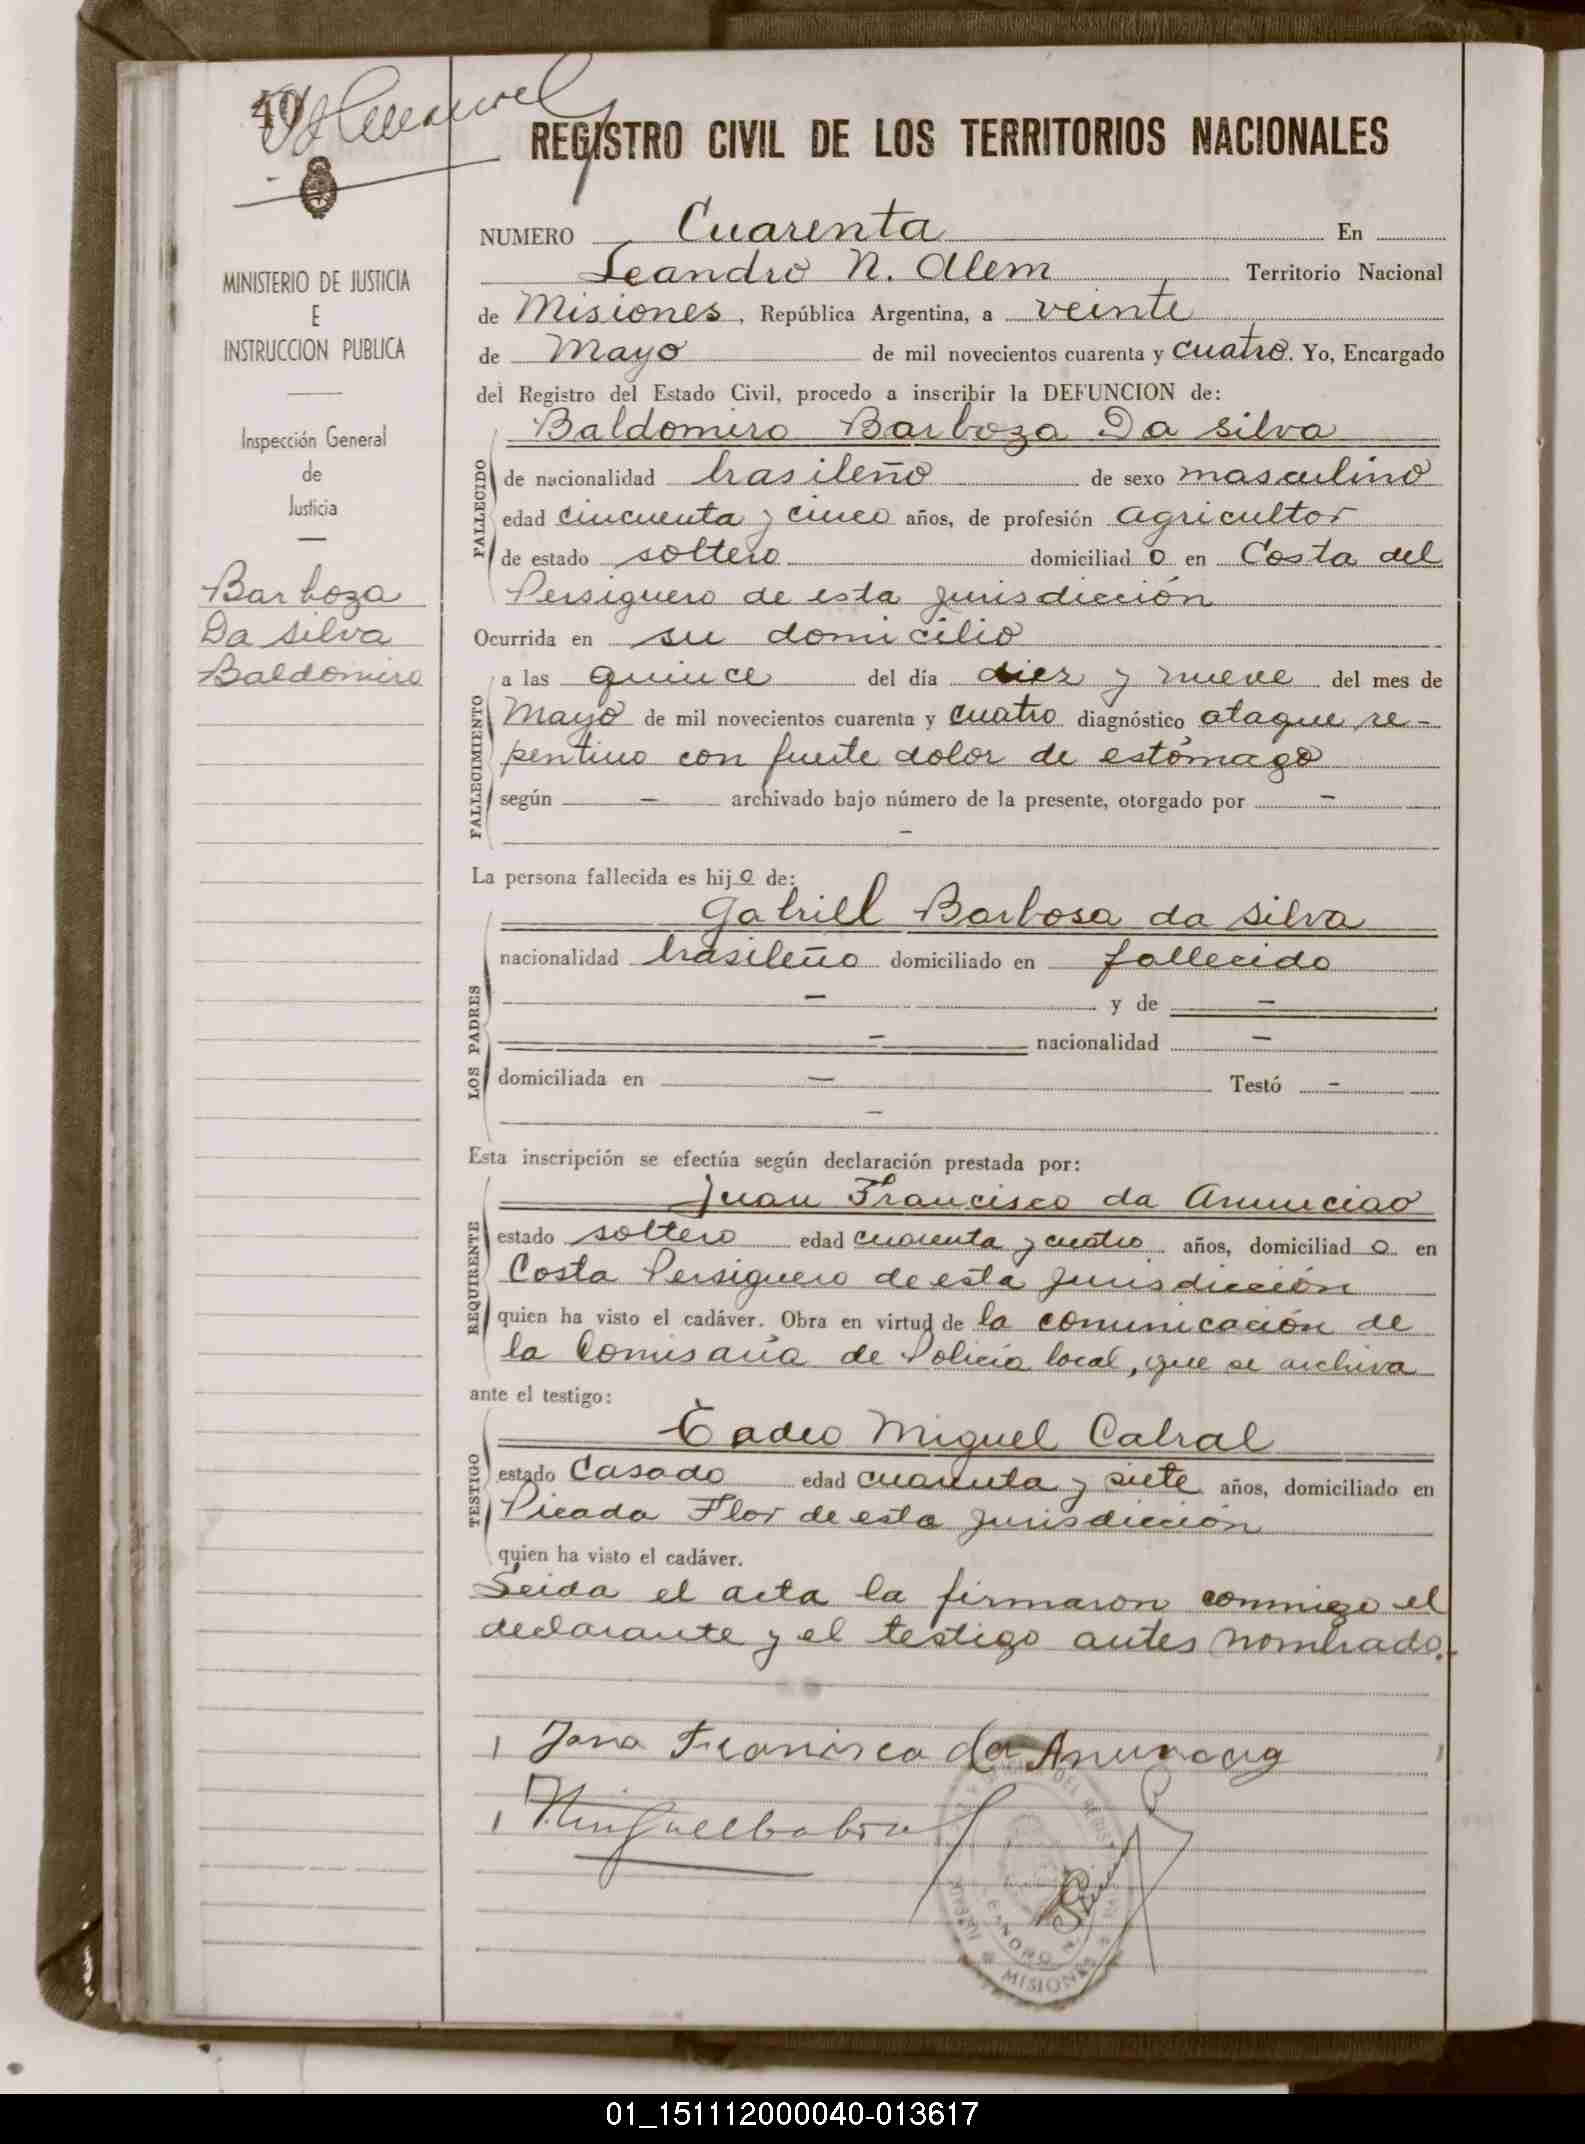 40
REGISTRO CIVIL DE LOS TERRITORIOS NACIONALES
MINISTERIO DE JUSTICIA
E
INSTRUCCION PUBLICA
Inspección General
de
Justicia
Barboza
Da silva
Baldomiro
NUMERO Cuarenta En
Leandro N. Alem Territorio Nacional
de Misiones, República Argentina, a veinte
de Mayo de mil novecientos cuarenta y cuatro. Yo, Encargado
del Registro del Estado Civil, procedo a inscribir la DEFUNCION de:
Baldomiro Barboza Da silva
FALLECIDO
de nacionalidad brasileño de sexo masculino
edad cincuenta y cinco años, de profesión agricultor
de estado soltero domiciliad o en Costa del
Persiguero de esta jurisdicción
Ocurrida en su domicilio
FALLECIMIENTO
a las quince del día diez y nueve del mes de
Mayo de mil novecientos cuarenta y cuatro diagnóstico ataque re-
pentino con fuerte dolor de estómago
según - archivado bajo número de la presente, otorgado por -
-
La persona fallecida es hijo de:
LOS PADRES
Gabriel Barbosa da silva
nacionalidad brasileño domiciliado en fallecido
- y de -
- nacionalidad -
domiciliada en - Testó -
-
Esta inscripción se efectúa según declaración prestada por:
REQUIRENTE
Juan Francisco da Anunciao
estado soltero edad cuarenta y cuatro años, domiciliad o en
Costa Persiguero de esta jurisdicción
quien ha visto el cadáver. Obra en virtud de la comunicación de
la Comisaría de Policía local, que se archiva
ante el testigo:
TESTIGO
Tadeo Miguel Cabral
estado Casado edad cuarenta y siete años, domiciliado en
Picada Flor de esta jurisdicción
quien ha visto el cadáver.
Leida el acta la firmaron conmigo el
declarante y el testigo antes nombrado.
Francisco da
Miguel Cabral
MISIONES
01_151112000040-013617